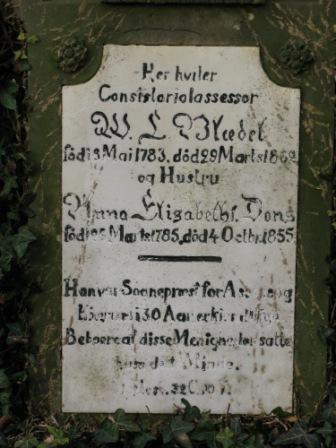 Her hviler
Consistorialassessor
W. L. Blædel
født 3 Mai 1783, død 29 Marts 1862
og Hustru
Anna Elizabeth f. Dons
født 25 Marts 1785, død 4 Octbr. 1855
Han var Sognepræst for A
30 Aar
Beboere af disse Menigheder satte
ham det Minde.